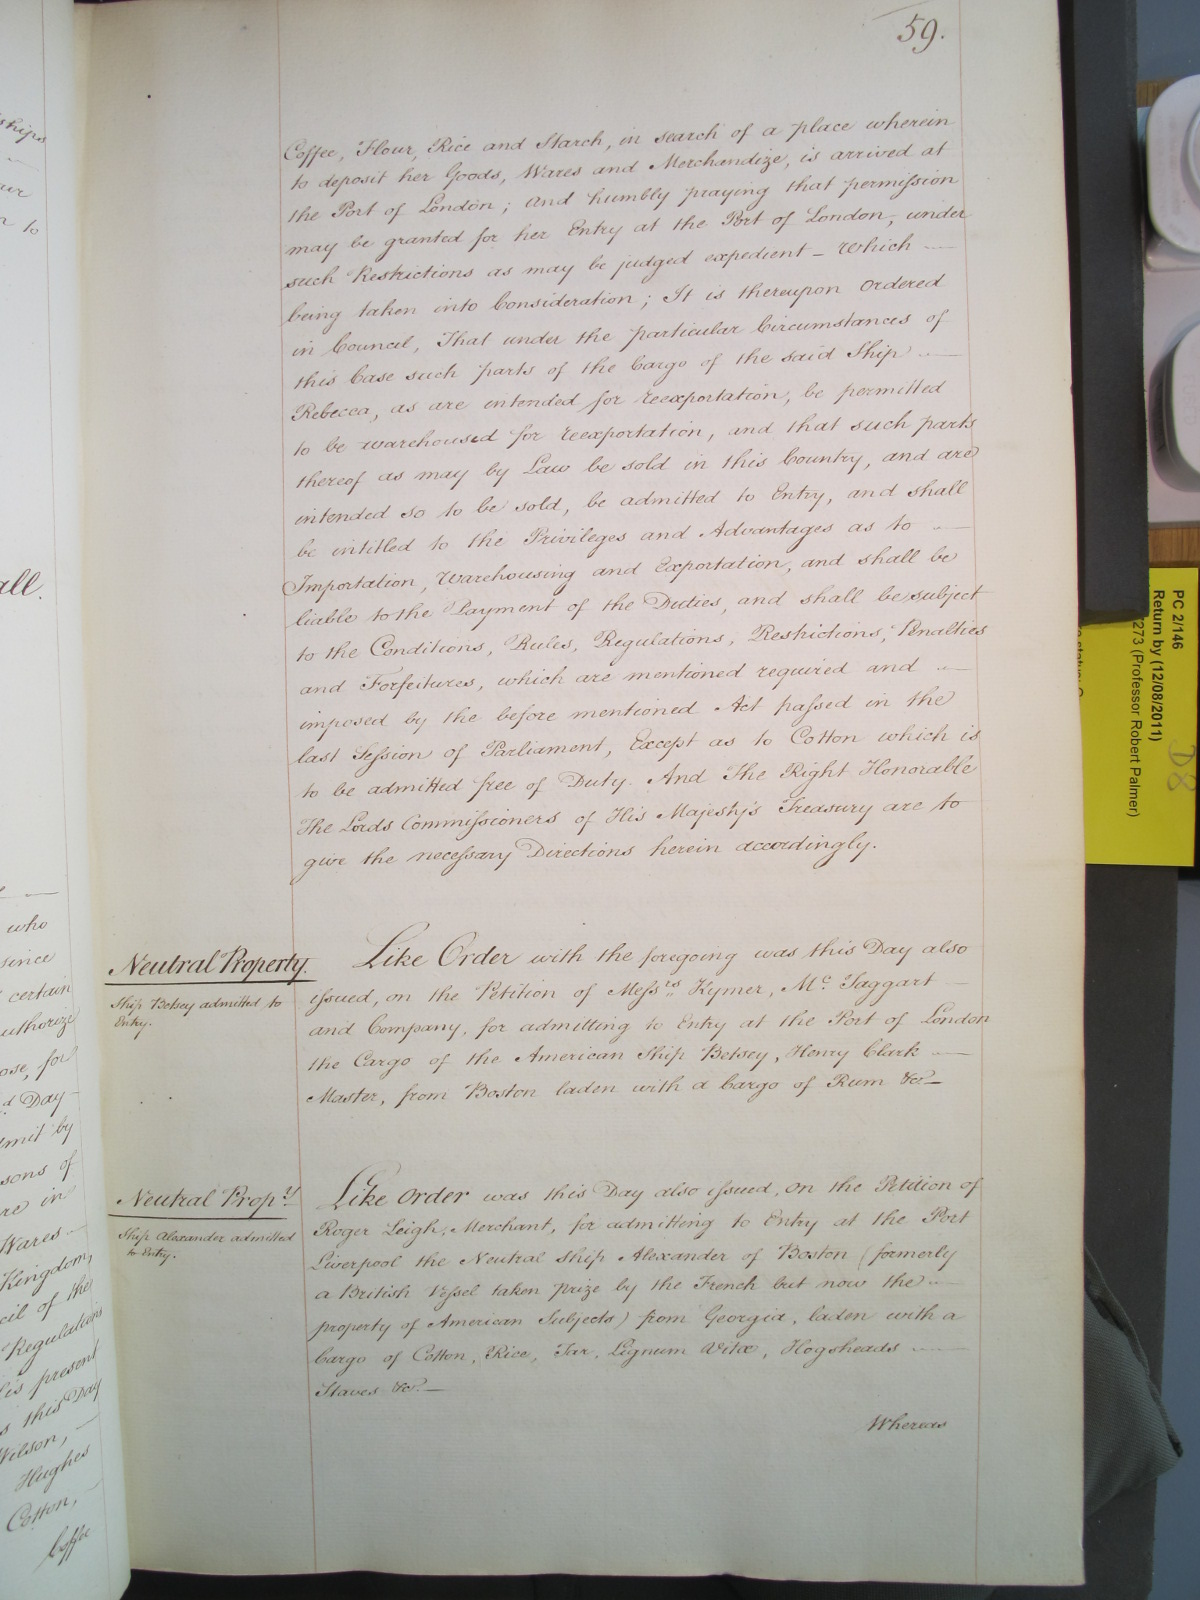 59.
Coffee, Flour, Rice and Starch, in search of a place wherein
to deposit her Goods, Wares and Merchandize, is arrived at
the Port of London; and humbly praying that permission
may be granted for her Entry at the Port of London, under
such Restrictions as may be judged expedient – Which
being taken into Consideration; It is thereupon Ordered
in Council, That under the particular Circumstances of
this Case such parts of the Cargo of the said Ship
Rebecca, as are intended for reexportation, be permitted
to be warehoused for reexportation, and that such parts
thereof as may by Law be sold in this Country, and are
intended so to be sold, be admitted to Entry, and shall
be intitled to the Privileges and Advantages as to
Importation, Warehousing and Exportation, and shall be
liable to the Payment of the Duties, and shall be subject
to the Conditions, Rules, Regulations, Restrictions, Penalties
and Forfeitures, which are mentioned required and
imposed by the before mentioned Act passed in the
last Session of Parliament, Except as to Cotton which is
to be admitted free of Duty. And The Right Honorable
The Lords Commissioners of His Majesty's Treasury are to
give the necessary Directions herein accordingly.
Neutral Property.
Ship Betsey admitted to
Entry.
Like Order with the foregoing was this Day also
issued, on the Petition of Mess.rs Kymer, Mc. Taggart
and Company, for admitting to Entry at the Port of London
the Cargo of the American Ship Betsey, Henry Clark
Master, from Boston laden with a Cargo of Rum &c.–
Neutral Prop.y
Ship Alexander admitted
to Entry.
Like Order was this Day also issued, on the Petition of
Roger Leigh, Merchant, for admitting to Entry at the Port
Liverpool the Neutral Ship Alexander of Boston (formerly
a British Vessel taken prize by the French but now the
property of American Subjects) from Georgia, laden with a
Cargo of Cotton, Rice, Tar, Lignum Vitæ, Hogsheads
Staves &c.–
Whereas
ships
n to
all.
who
since
certain
authorize
ose, for
d Day
rmit by
sons of
re in
Wares
Kingdom,
cil of the
Regulations
is present
s this Day
Wilson,
Hughes
Cotton,
Coffee
PC 2/146
Return by (12/08/2011)
273 (Professor Robert Palmer)
D8